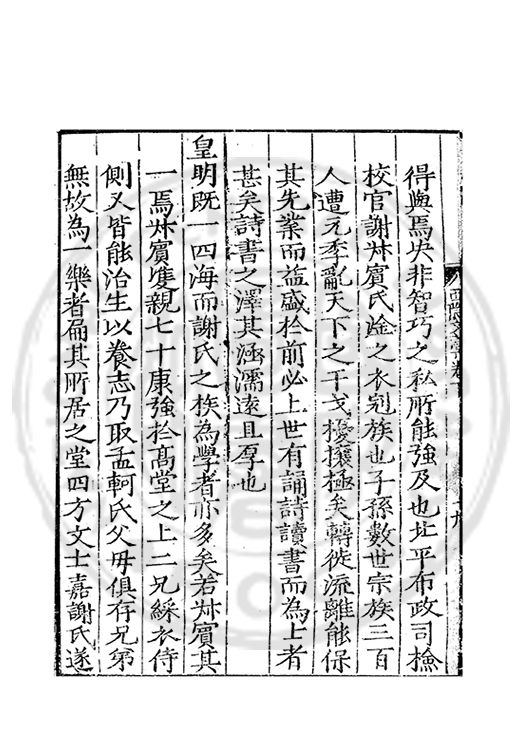 得與焉夬非智巧之私所能強及也北平布政司檢
校官謝叔賓氏陰之衣冠族也子孫數世宗族三百
人遭元季亂天下之干戈擾攘極矣轉徙流離能保
其先業而益盛於前必上世有誦詩讀書而為上者
甚矣詩書之澤其涵濡遠且厚也
皇明既一四海而謝氏之族為學者亦多矣若叔賓其
一焉叔賓雙親七十康強於高堂之上二兄綵衣侍
側又皆能治生以養志乃取孟軻氏父母俱存兄弟
無故為一樂者扁其所居之堂四方文士嘉謝氏遂